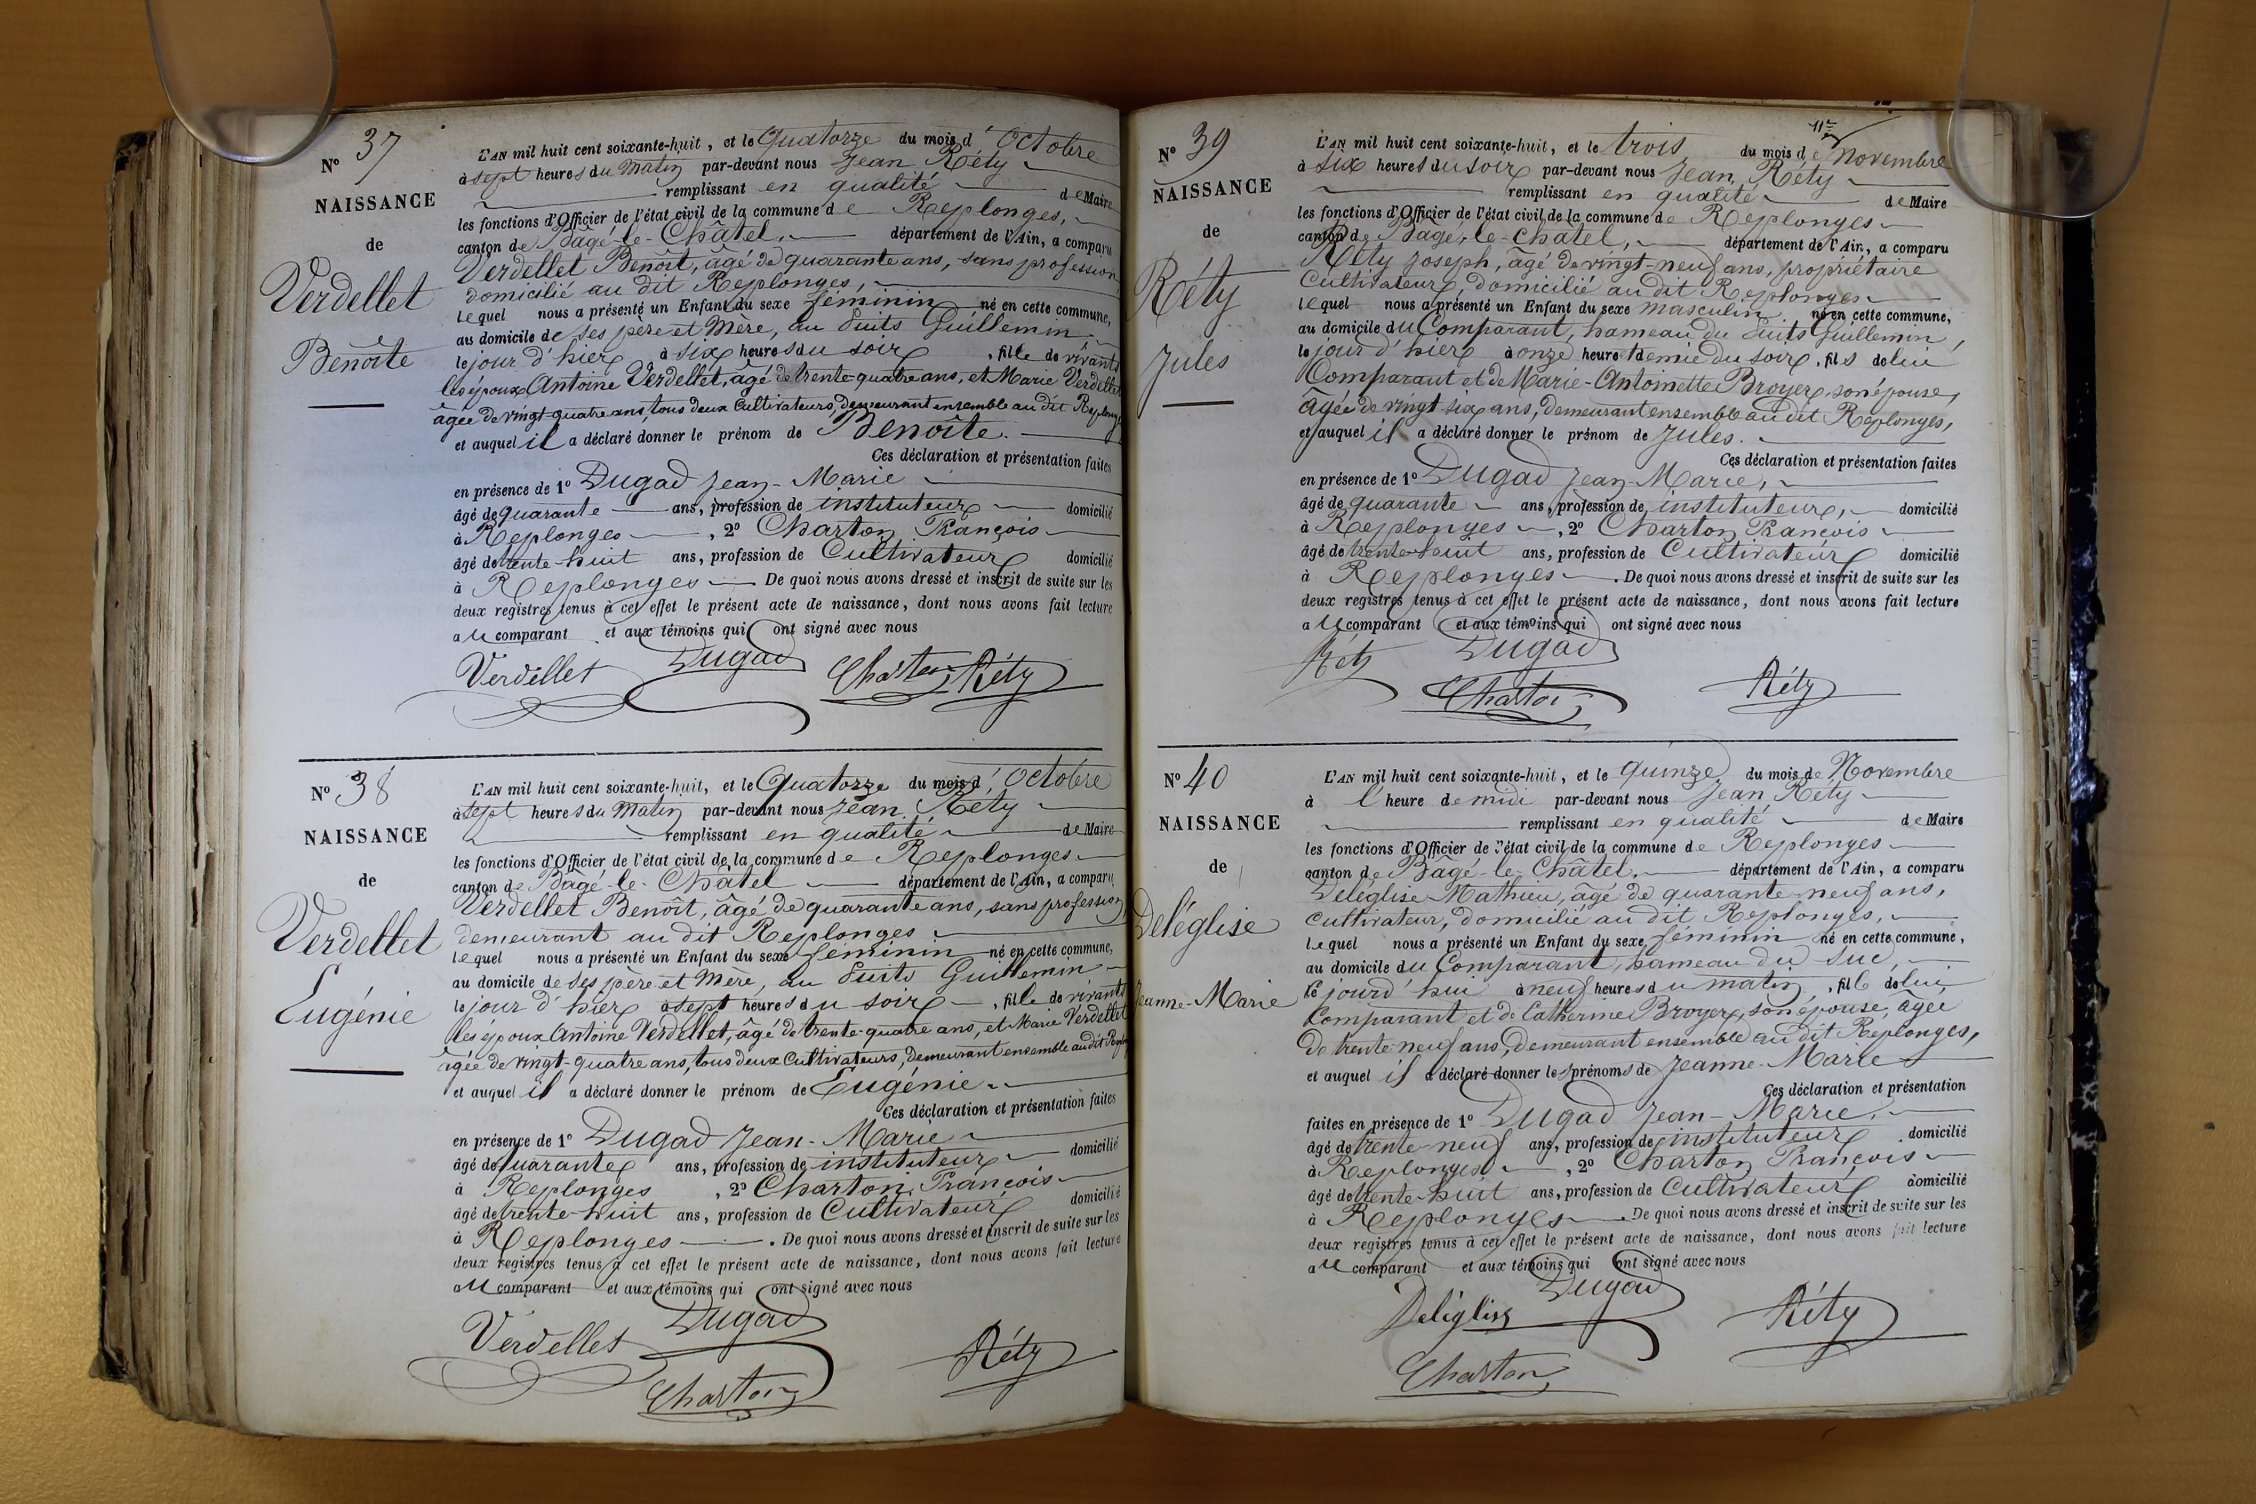 N° 37
NAISSANCE
de
Verdellet
Benoîte
L'AN mil huit cent soixante-huit, et le Quatorze du mois d'Octobre
à sept heures du Matin par-devant nous Jean Réty
remplissant en qualité de Maire
les fonctions d'Officier de l'état civil de la commune de Replonges,
canton de Bâgé-le-Châtel, département de l'Ain, a comparu
Verdellet Benoît, âgé de quarante ans, sans profession
domicilié au dit Replonges,
lequel nous a présenté un Enfant du sexe féminin né en cette commune,
au domicile de ses père et Mère, au Puits Guillemin
le jour d'hier à six heures du soir, fille de vivants
les époux Antoine Verdellet, âgé de trente-quatre ans, et Marie Verdellet
âgée de vingt-quatre ans, tous deux Cultivateurs, demeurant ensemble au dit Replonges
et auquel il a déclaré donner le prénom de Benoîte.
Ces déclaration et présentation faites
en présence de 1° Dugad Jean-Marie
âgé de quarante ans, profession de instituteur domicilié
à Replonges, 2° Charton François
âgé de trente-huit ans, profession de Cultivateur domicilié
à Replonges De quoi nous avons dressé et inscrit de suite sur les
deux registres tenus à cet effet le présent acte de naissance, dont nous avons fait lecture
au comparant et aux témoins qui ont signé avec nous
Verdellet Dugad Charton Réty
N° 38
NAISSANCE
de
Verdellet
Eugénie
L'AN mil huit cent soixante-huit, et le Quatorze du mois d'Octobre
à sept heures du Matin par-devant nous Jean Réty
remplissant en qualité de Maire
les fonctions d'Officier de l'état civil de la commune de Replonges
canton de Bâgé-le-Châtel département de l'Ain, a comparu
Verdellet Benoît, âgé de quarante ans, sans profession,
demeurant au dit Replonges
lequel nous a présenté un Enfant du sexe féminin né en cette commune,
au domicile de ses père et Mère, au Puits Guillemin
le jour d'hier à sept heures du soir, fille de vivants
les époux Antoine Verdellet, âgé de trente-quatre ans, et Marie Verdellet
âgée de vingt-quatre ans, tous deux Cultivateurs, demeurant ensemble au dit Replonges
et auquel il a déclaré donner le prénom de Eugénie.
Ces déclaration et présentation faites
en présence de 1° Dugad Jean-Marie
âgé de quarante ans, profession de instituteur domicilié
à Replonges, 2° Charton François
âgé de trente-huit ans, profession de Cultivateur domicilié
à Replonges. De quoi nous avons dressé et inscrit de suite sur les
deux registres tenus à cet effet le présent acte de naissance, dont nous avons fait lecture
au comparant et aux témoins qui ont signé avec nous
Verdellet Dugad Réty
Charton
11re
N° 39
NAISSANCE
de
Réty
Jules
L'AN mil huit cent soixante-huit, et le trois du mois de Novembre
à six heures du soir par-devant nous Jean Réty
remplissant en qualité de Maire
les fonctions d'Officier de l'état civil de la commune de Replonges
canton de Bâgé-le-Châtel, département de l'Ain, a comparu
Réty Joseph, âgé de vingt-neuf ans, propriétaire
Cultivateur, domicilié au dit Replonges
lequel nous a présenté un Enfant du sexe masculin né en cette commune,
au domicile du Comparant, hameau du Puits Guillemin,
le jour d'hier à onze heures demie du soir, fils de lui
Comparant et de Marie-Antoinette Broyer, son épouse,
âgée de vingt-six ans, demeurant ensemble au dit Replonges,
et auquel il a déclaré donner le prénom de Jules.
Ces déclaration et présentation faites
en présence de 1° Dugad Jean-Marie,
âgé de quarante ans, profession de instituteur, domicilié
à Replonges, 2° Charton François
âgé de trente-huit ans, profession de Cultivateur domicilié
à Replonges. De quoi nous avons dressé et inscrit de suite sur les
deux registres tenus à cet effet le présent acte de naissance, dont nous avons fait lecture
au comparant et aux témoins qui ont signé avec nous
Réty Dugad
Charton Réty
N° 40
NAISSANCE
de
Deléglise
Jeanne-Marie
L'AN mil huit cent soixante-huit, et le quinze du mois de Novembre
à l'heure de midi par-devant nous Jean Réty
remplissant en qualité de Maire
les fonctions d'Officier de l'état civil de la commune de Replonges
canton de Bâgé-le-Châtel, département de l'Ain, a comparu
Deléglise Mathieu, âgé de quarante-neuf ans,
cultivateur, domicilié au dit Replonges,
lequel nous a présenté un Enfant du sexe féminin né en cette commune,
au domicile du Comparant, hameau du Suc,
le jourd'hui à neuf heures du matin, fille de lui
Comparant et de Catherine Broyer, son épouse, âgée
de trente-neuf ans, demeurant ensemble au dit Replonges,
et auquel il a déclaré donner les prénoms de Jeanne-Marie
Ces déclaration et présentation
faites en présence de 1° Dugad Jean-Marie,
âgé de trente-neuf ans, profession de instituteur domicilié
à Replonges, 2° Charton François
âgé de trente-huit ans, profession de Cultivateur domicilié
à Replonges. De quoi nous avons dressé et inscrit de suite sur les
deux registres tenus à cet effet le présent acte de naissance, dont nous avons fait lecture
au comparant et aux témoins qui ont signé avec nous
Deléglise Dugad Réty
Charton